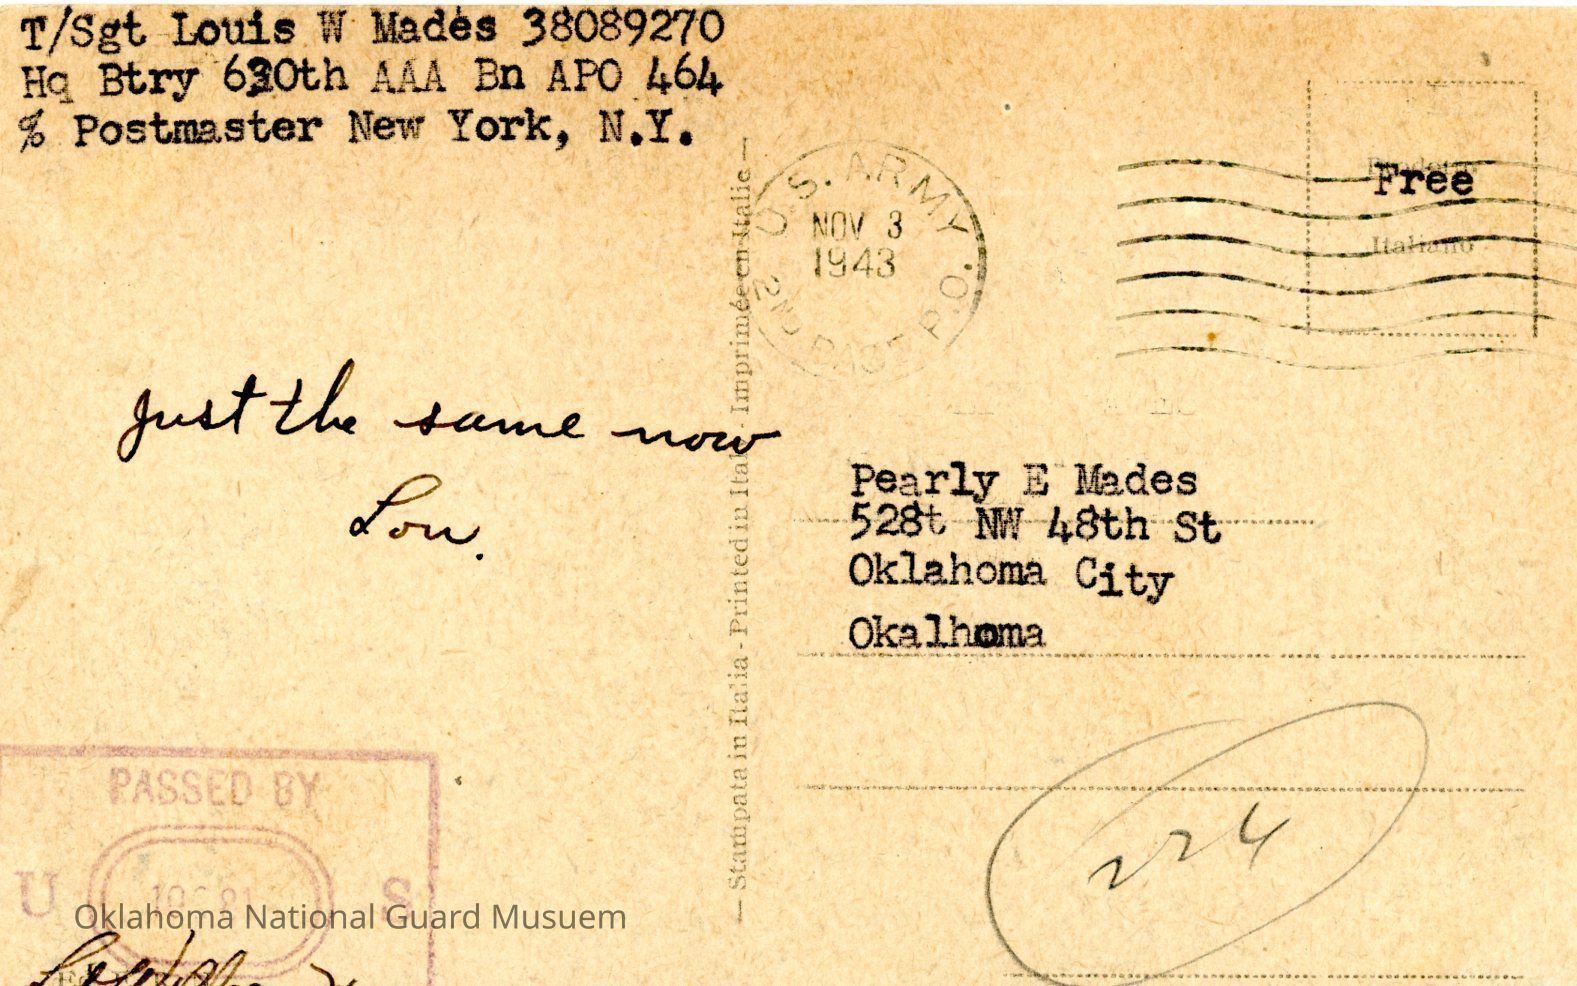 T/Sgt Louis W Mades 38089270
Hq Btry 630th AAA Bn APO 464
% Postmaster New York, N.Y.
U.S. ARMY
NOV 3
1943
2ND BASE P.O.
Prodotto
Free
Italiano
Just the same now
Lou.
— Stampata in Italia - Printed in Italy - Imprimée en Italie —
Pearly E Mades
528t NW 48th St
Oklahoma City
Okalhoma
224
PASSED BY
U S
Oklahoma National Guard Musuem